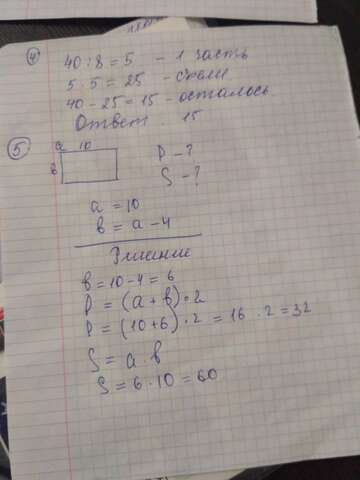 ④ 40 : 8 = 5 - 1 часть
5 · 5 = 25 - съели
40 - 25 = 15 - осталось
Ответ. 15
⑤ a 10
в
P - ?
S - ?
a = 10
в = a - 4
Решение
в = 10 - 4 = 6
P = (a + в) · 2
P = (10 + 6) · 2 = 16 · 2 = 32
S = a · в
S = 6 · 10 = 60